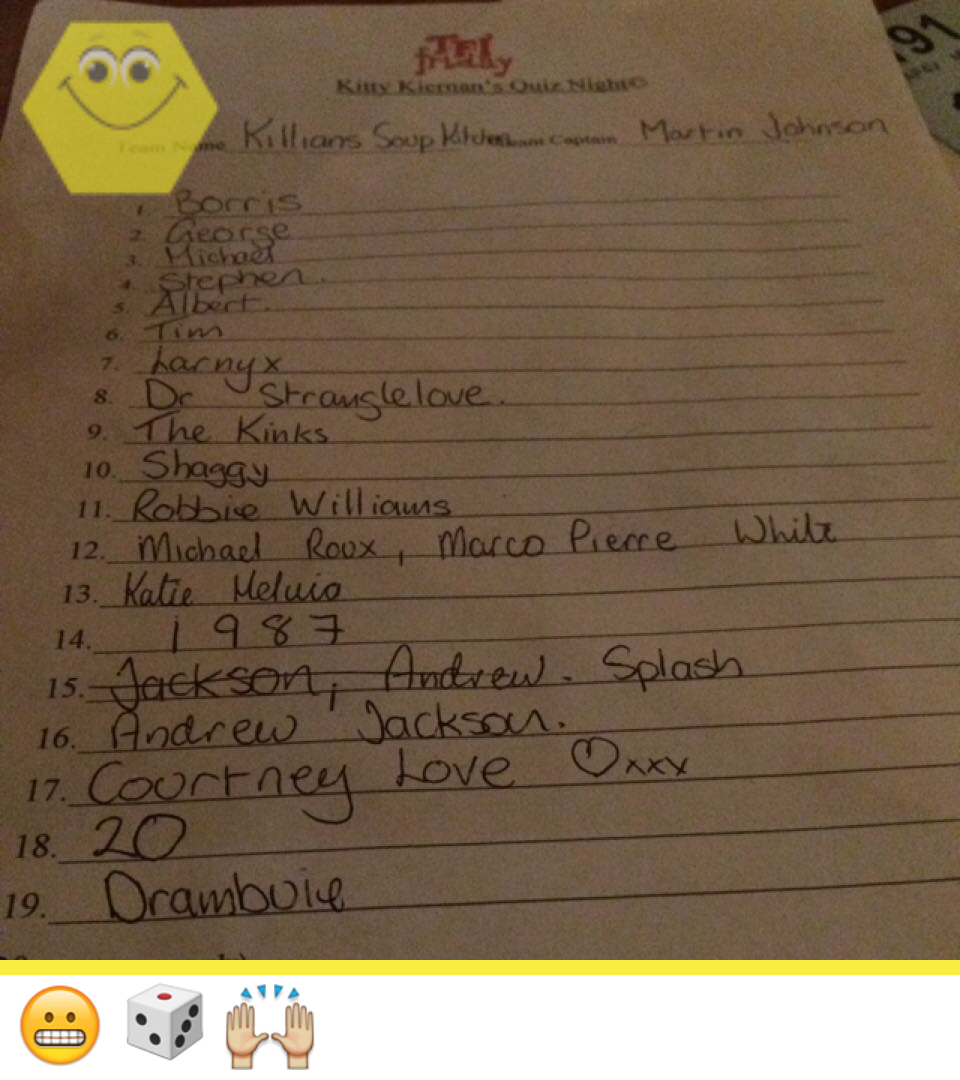 TFI
friday
Kitty Kiernan's Quiz Night©
Team Name Killians Soup Kitchen Team Captain Martin Johnson
1. Borris
2. George
3. Michael
4. Stephen.
5. Albert.
6. Tim
7. Larnyx
8. Dr Stranglelove.
9. The Kinks
10. Shaggy
11. Robbie Williams
12. Michael Roux, Marco Pierre White
13. Katie Meluia
14. 1987
15. Jackson, Andrew. Splash
16. Andrew Jackson.
17. Courtney Love ♡xxx
18. 20
19. Drambuie
91